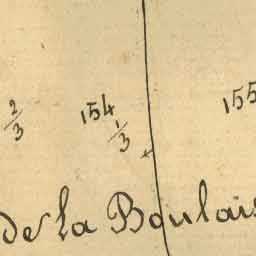 2/3
154 1/3
155
de la Boulais